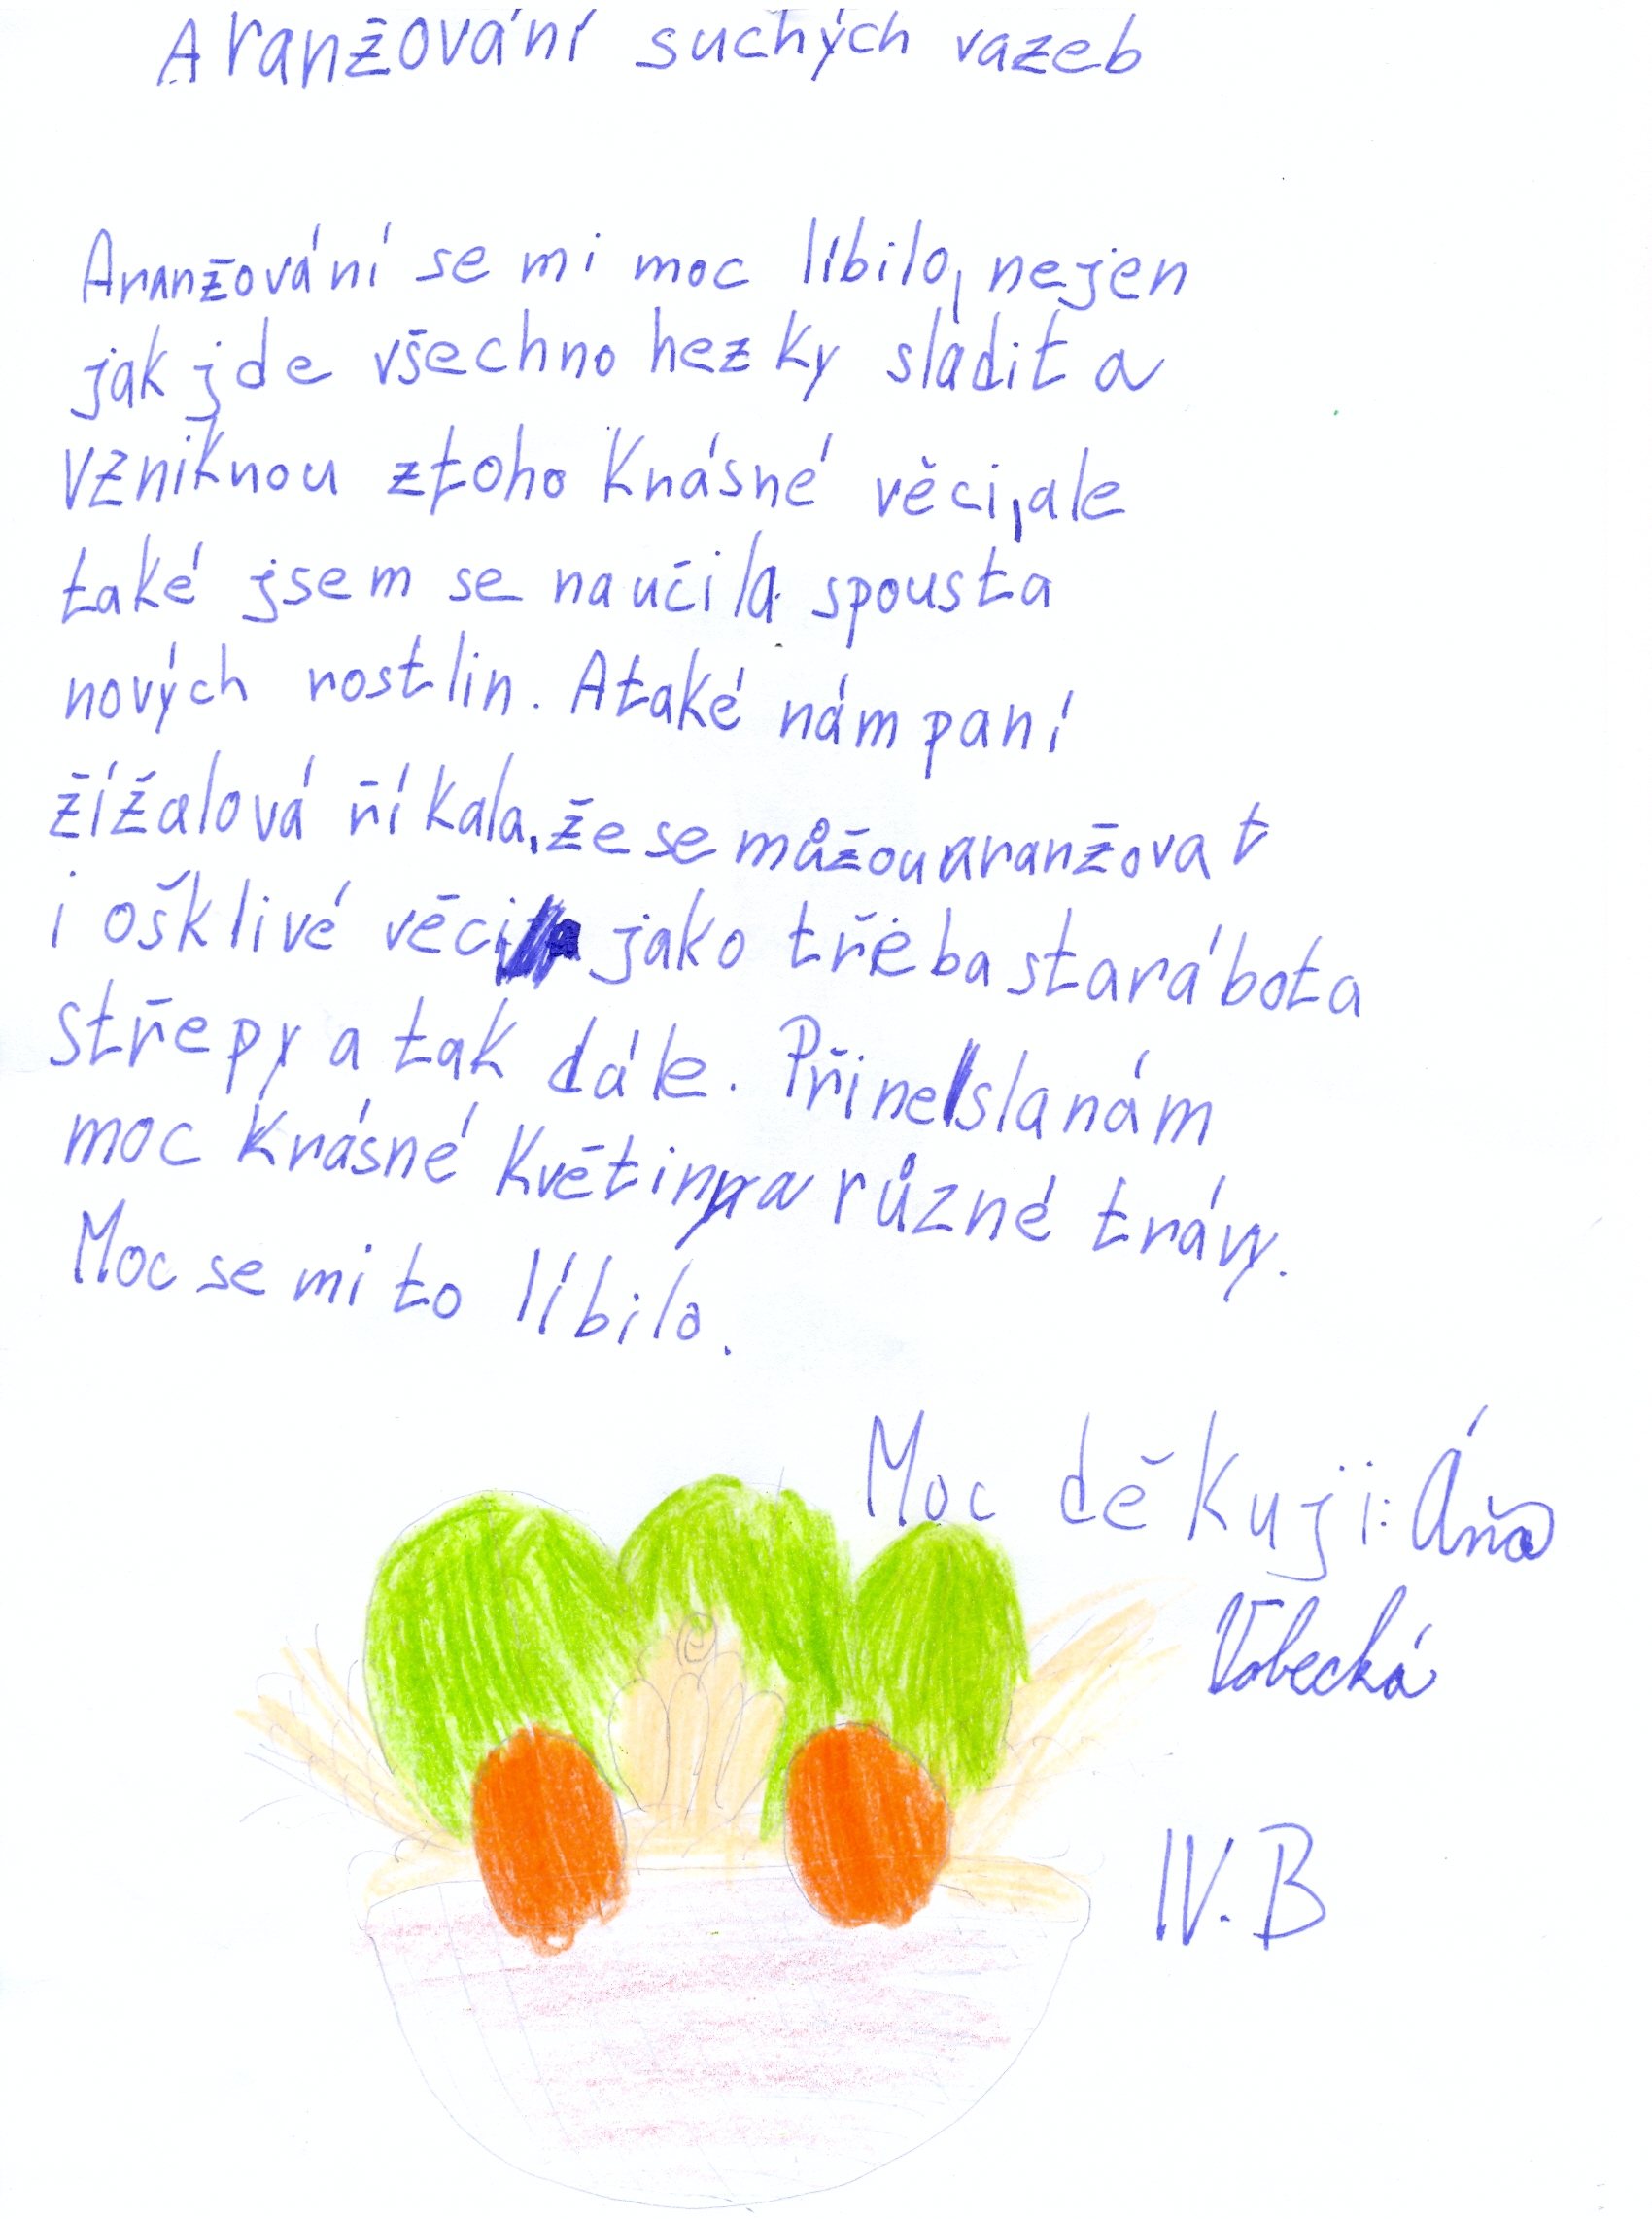 Aranžování suchých vazeb
Aranžování se mi moc líbilo, nejen
jak jde všechno hezky sladit a
vzniknou z toho krásné věci, ale
také jsem se naučila spousta
nových rostlin. A také nám paní
žížalová říkala, že se můžou aranžovat
i ošklivé věci jako třeba stará bota
střepy a tak dále. Přinesla nám
moc krásné květiny a různé trávy.
Moc se mi to líbilo.
Moc děkuji: Áňa
IV. B